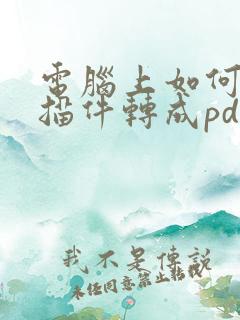 電腦上如何
描件轉成pd
我不是傳說
未經同意禁止轉載